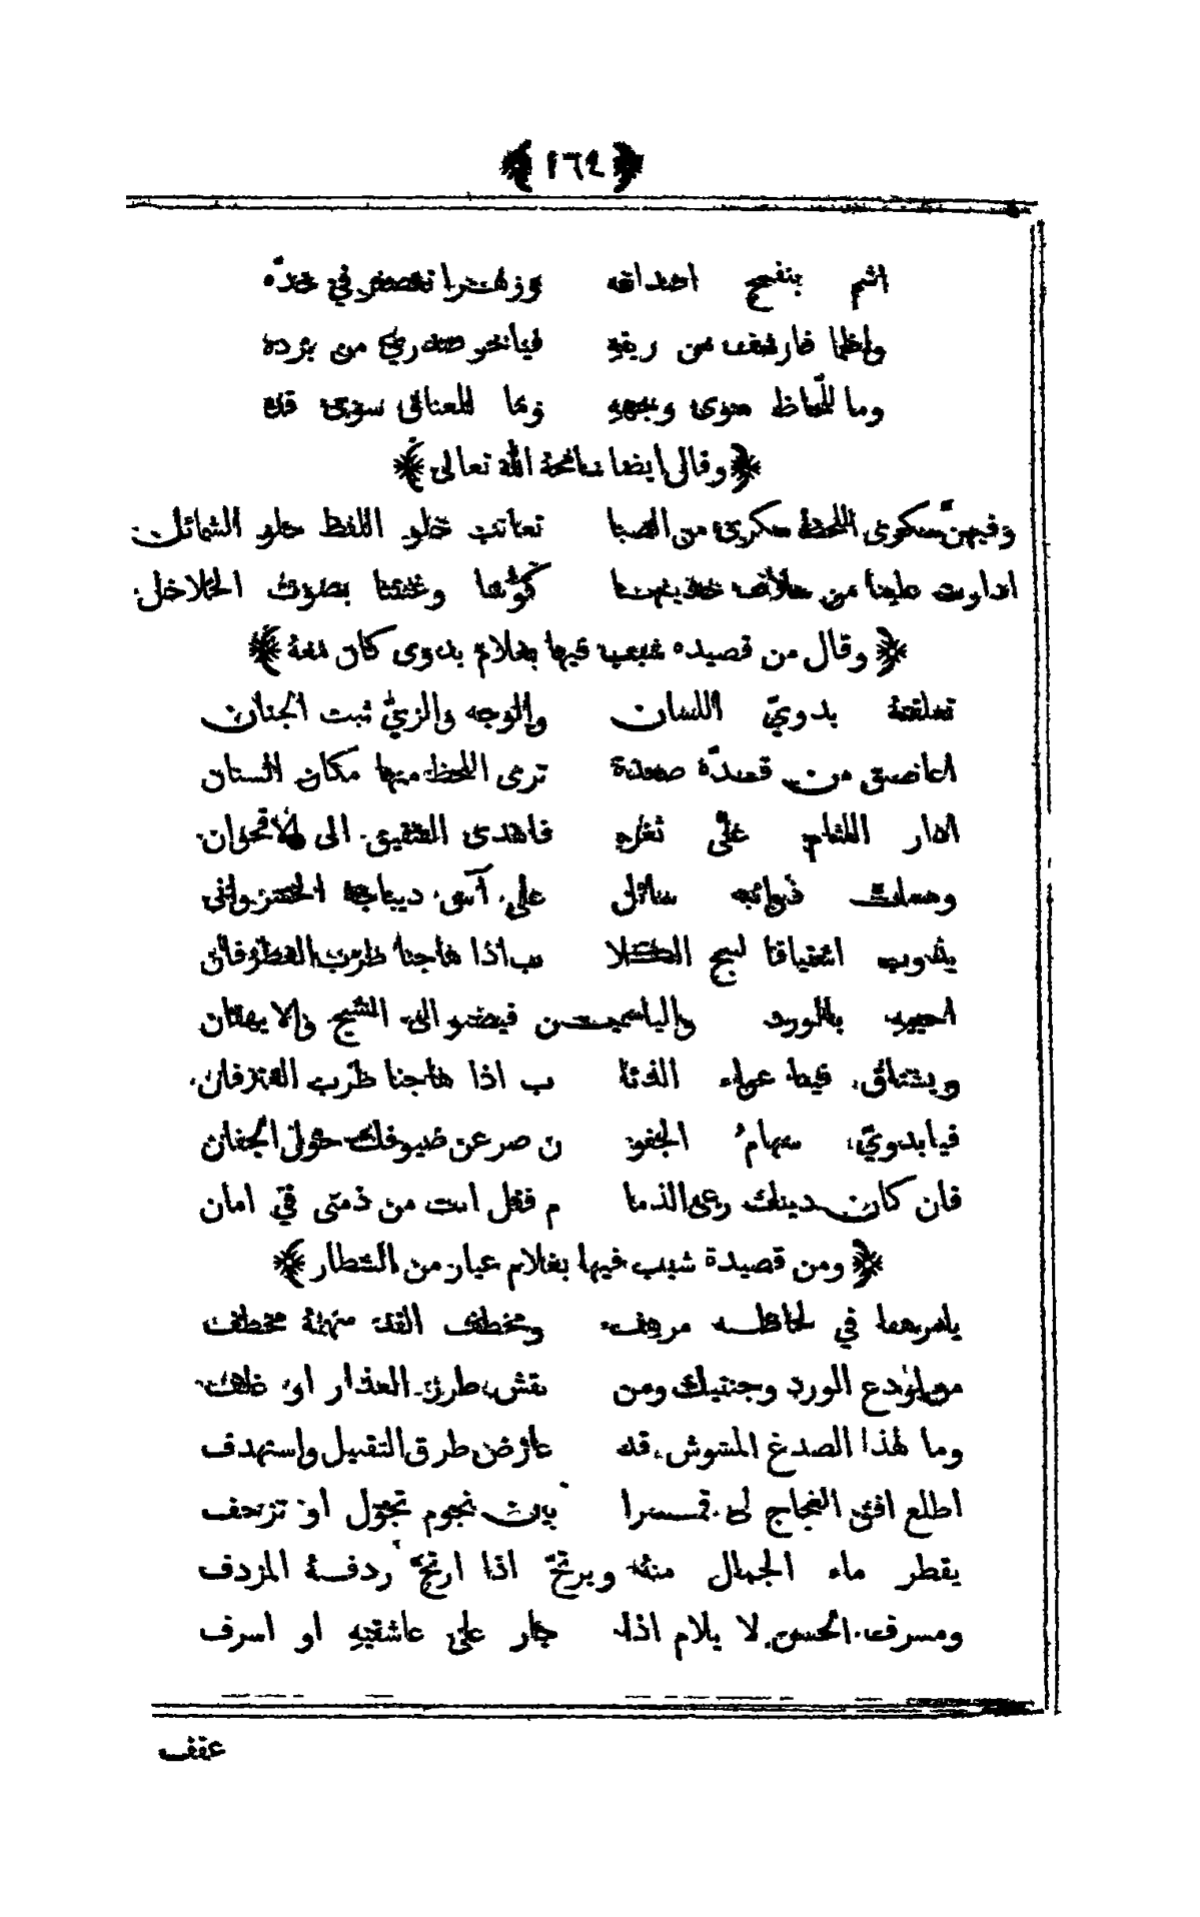 ﴿ ١٦٤ ﴾
اشم بنفسج اصداغه وزهرا تعصفر في خدّه
واظما فارشف من ريقهِ فياخر صدري من برده
وما للّحاظ سوى وجههِ وما للعناق سوى قده
﴿ وقال ايضا سامحهُ الله تعالى ﴾
وفيهنّ سكرى اللحظ سكرى من الصبا تعاتب حلو اللفظ حلو الشمائل
ادارت علينا من سلاف حديثها كؤسا وغنتنا بصوت الخلاخل
﴿ وقال من قصيده شبب فيها بغلام بدوى كان معهُ ﴾
تعلقتهُ بدويّ اللسان والوجه والزيّ ثبت الجنان
اعانق من قدّه صعدة ترى اللحظ منها مكان السنان
ادار اللثام على ثغرهِ فاهدى الشقيق الى الاقحوان
ومسك ذوائبه سائل على آس ديباجه الخسرواني
احييهِ بالورد والياسمين فيصبو الى الشيح والايهقان
ويشتاق فيما عراء الدنا ب اذا هاجنا طرب
فيا بدويّ سهامُ الجفو ن صرعن ضيوفك حول الجفان
فان كان دينك رعى الذما م فقل انت من ذمتى في امان
﴿ ومن قصيدة شبب فيها بغلام عيار من الشطار ﴾
يا مرهفا في لحاظه مرهف ومخطف القد منهُ مخطف
من اودع الورد وجنتيك ومن نقش طرز العذار او غلف
وما لهذا الصدغ المشوش قد عارض طرق التقبيل واستهدف
اطلع افق العجاج لى قمرا بات نجوم تجول او تزحف
يقطر ماء الجمال منهُ ويرتجّ اذا ارتجّ ردفهُ المردف
ومسرف الحسن لا يلام اذا جار على عاشقيهِ او اسرف
عقف